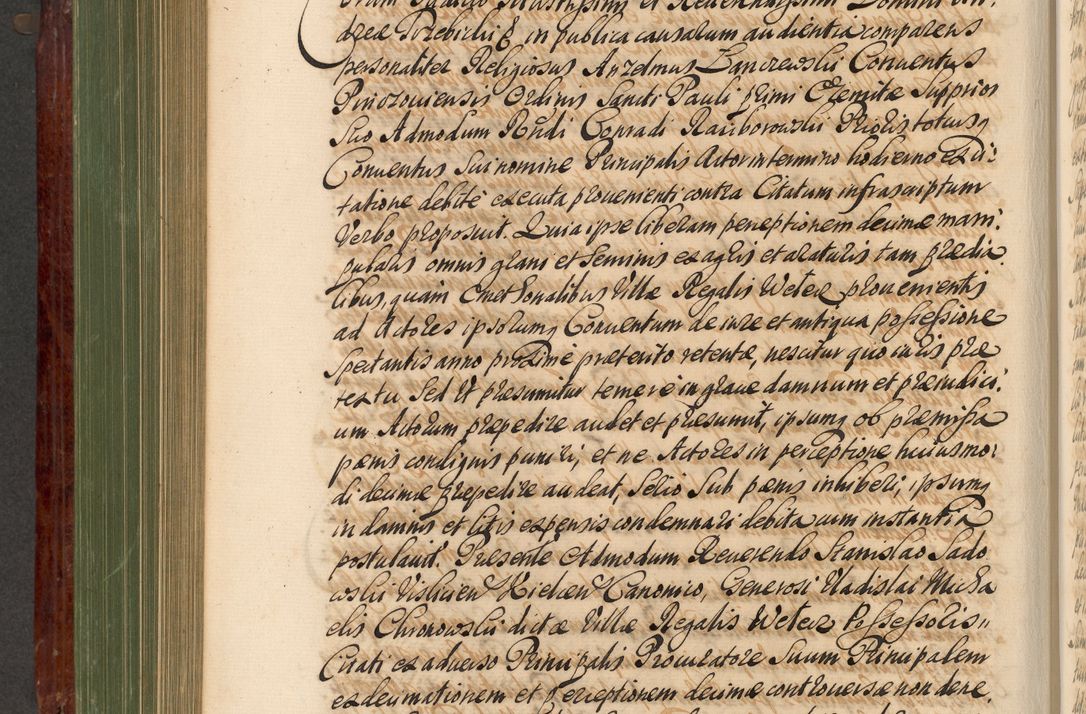 coram Iudicio Illustrissimi et Reverendissimi Domini An:
dreæ Trzebicki in publica causarum audientia comparens
personaliter Religiosus Anzelmus Lanczewski Conventus
Pinczoviensis Ordinis Sancti Pauli primi Eremitæ Supprior
suo Admodum Rndi Conradi Raciborowski Prioris totiusq
Conventus Sui nomine Principalis Actor in termino hodierno ex ci:
tatione debite executa provenienti contra Citatum infrascriptum
Verbo proposuit. Quia ipse liberam perceptionem decimæ mani:
pularis omnis grani et Seminis ex agris et araturis tam prædia
libus, quam Cmethonalibus Villæ Regalis Weter provenientis
ad Actores ipsorumq Conventum de iure et antiqua possessione
spectantis anno proxime præterito retentæ, nescitur quo iuris præ
textu sed ut præsumitur temere in grave damnum et præiudici:
um Actorum præpedire audet et præsumit, ipsumq ob præmissa
pænis condignis puniri, et ne Actores in perceptione huiusmo:
di decimæ præpedire audeat, serio sub pænis inhiberi, ipsumq
in damnis et litis expensis condemnari debita cum instantia
postulavit. Præsente Admodum Reverendo Stanislao Sado
wski Vislicien Kielcen Canonico, Generosi Vladislai Micha
elis Chronowski dictæ Villæ Regalis Weter Possessoris
Citati ex adverso Principalis Procuratore Suum Principalem
ex decimationem et perceptionem decimæ controversæ non dene